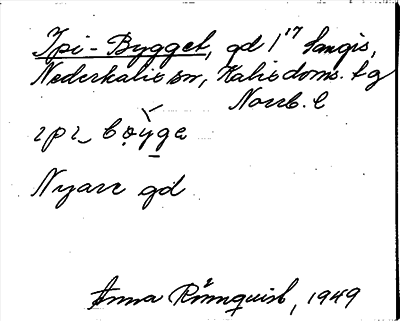 Ipi-Bygget, gd 1¹⁷ Sangis,
Nederkalix sn, Kalix doms. tg
Norrb. l
ıpı_ bo̩ỳge
Nyare gd
Anna Rönnquist, 1949